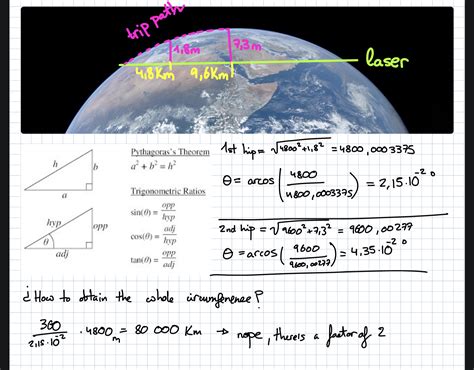 trip path
1,8m
7,3m
4,8Km
9,6Km
laser
Pythagoras's Theorem
a² + b² = h²
h
b
a
Trigonometric Ratios
sin(θ) = opp/hyp
cos(θ) = adj/hyp
tan(θ) = opp/adj
hyp
opp
θ
adj
1st hip = √4800²+1,8² = 4800,0003375
θ = arcos(4800/4800,0003375) = 2,15·10⁻² º
2nd hip = √9600²+7,3² = 9600,00277
θ = arcos(9600/9600,00277) = 4,35·10⁻² º
¿How to obtain the whole circumference?
360/2,15·10⁻² · 4800 m = 80 000 Km → nope, there's a factor of 2